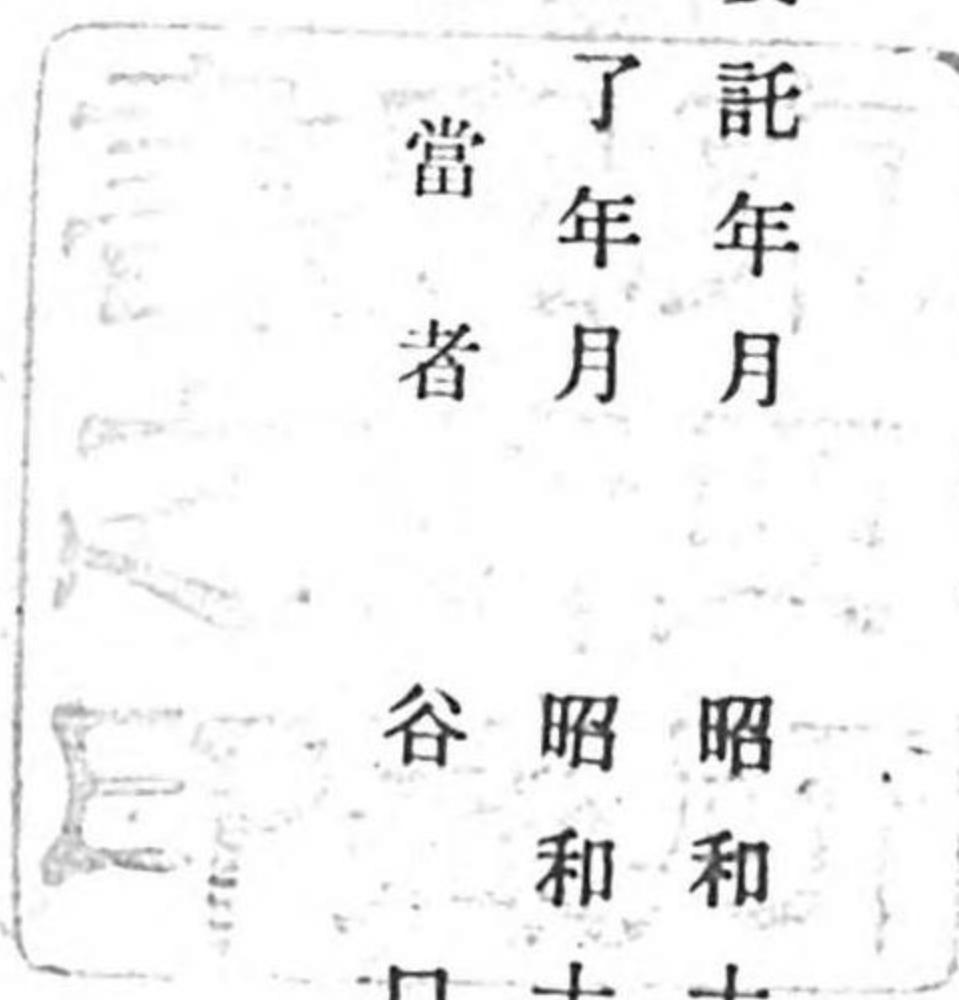 託年月 昭和十
了年月 昭和十
當者 谷